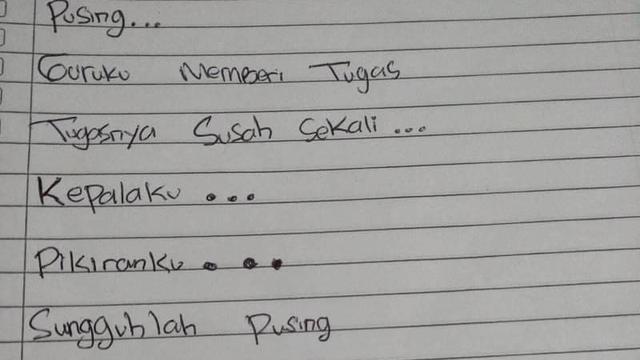 Pusing...
Guruku Memberi Tugas
Tugasnya Susah Sekali...
Kepalaku...
Pikiranku...
Sungguhlah Pusing